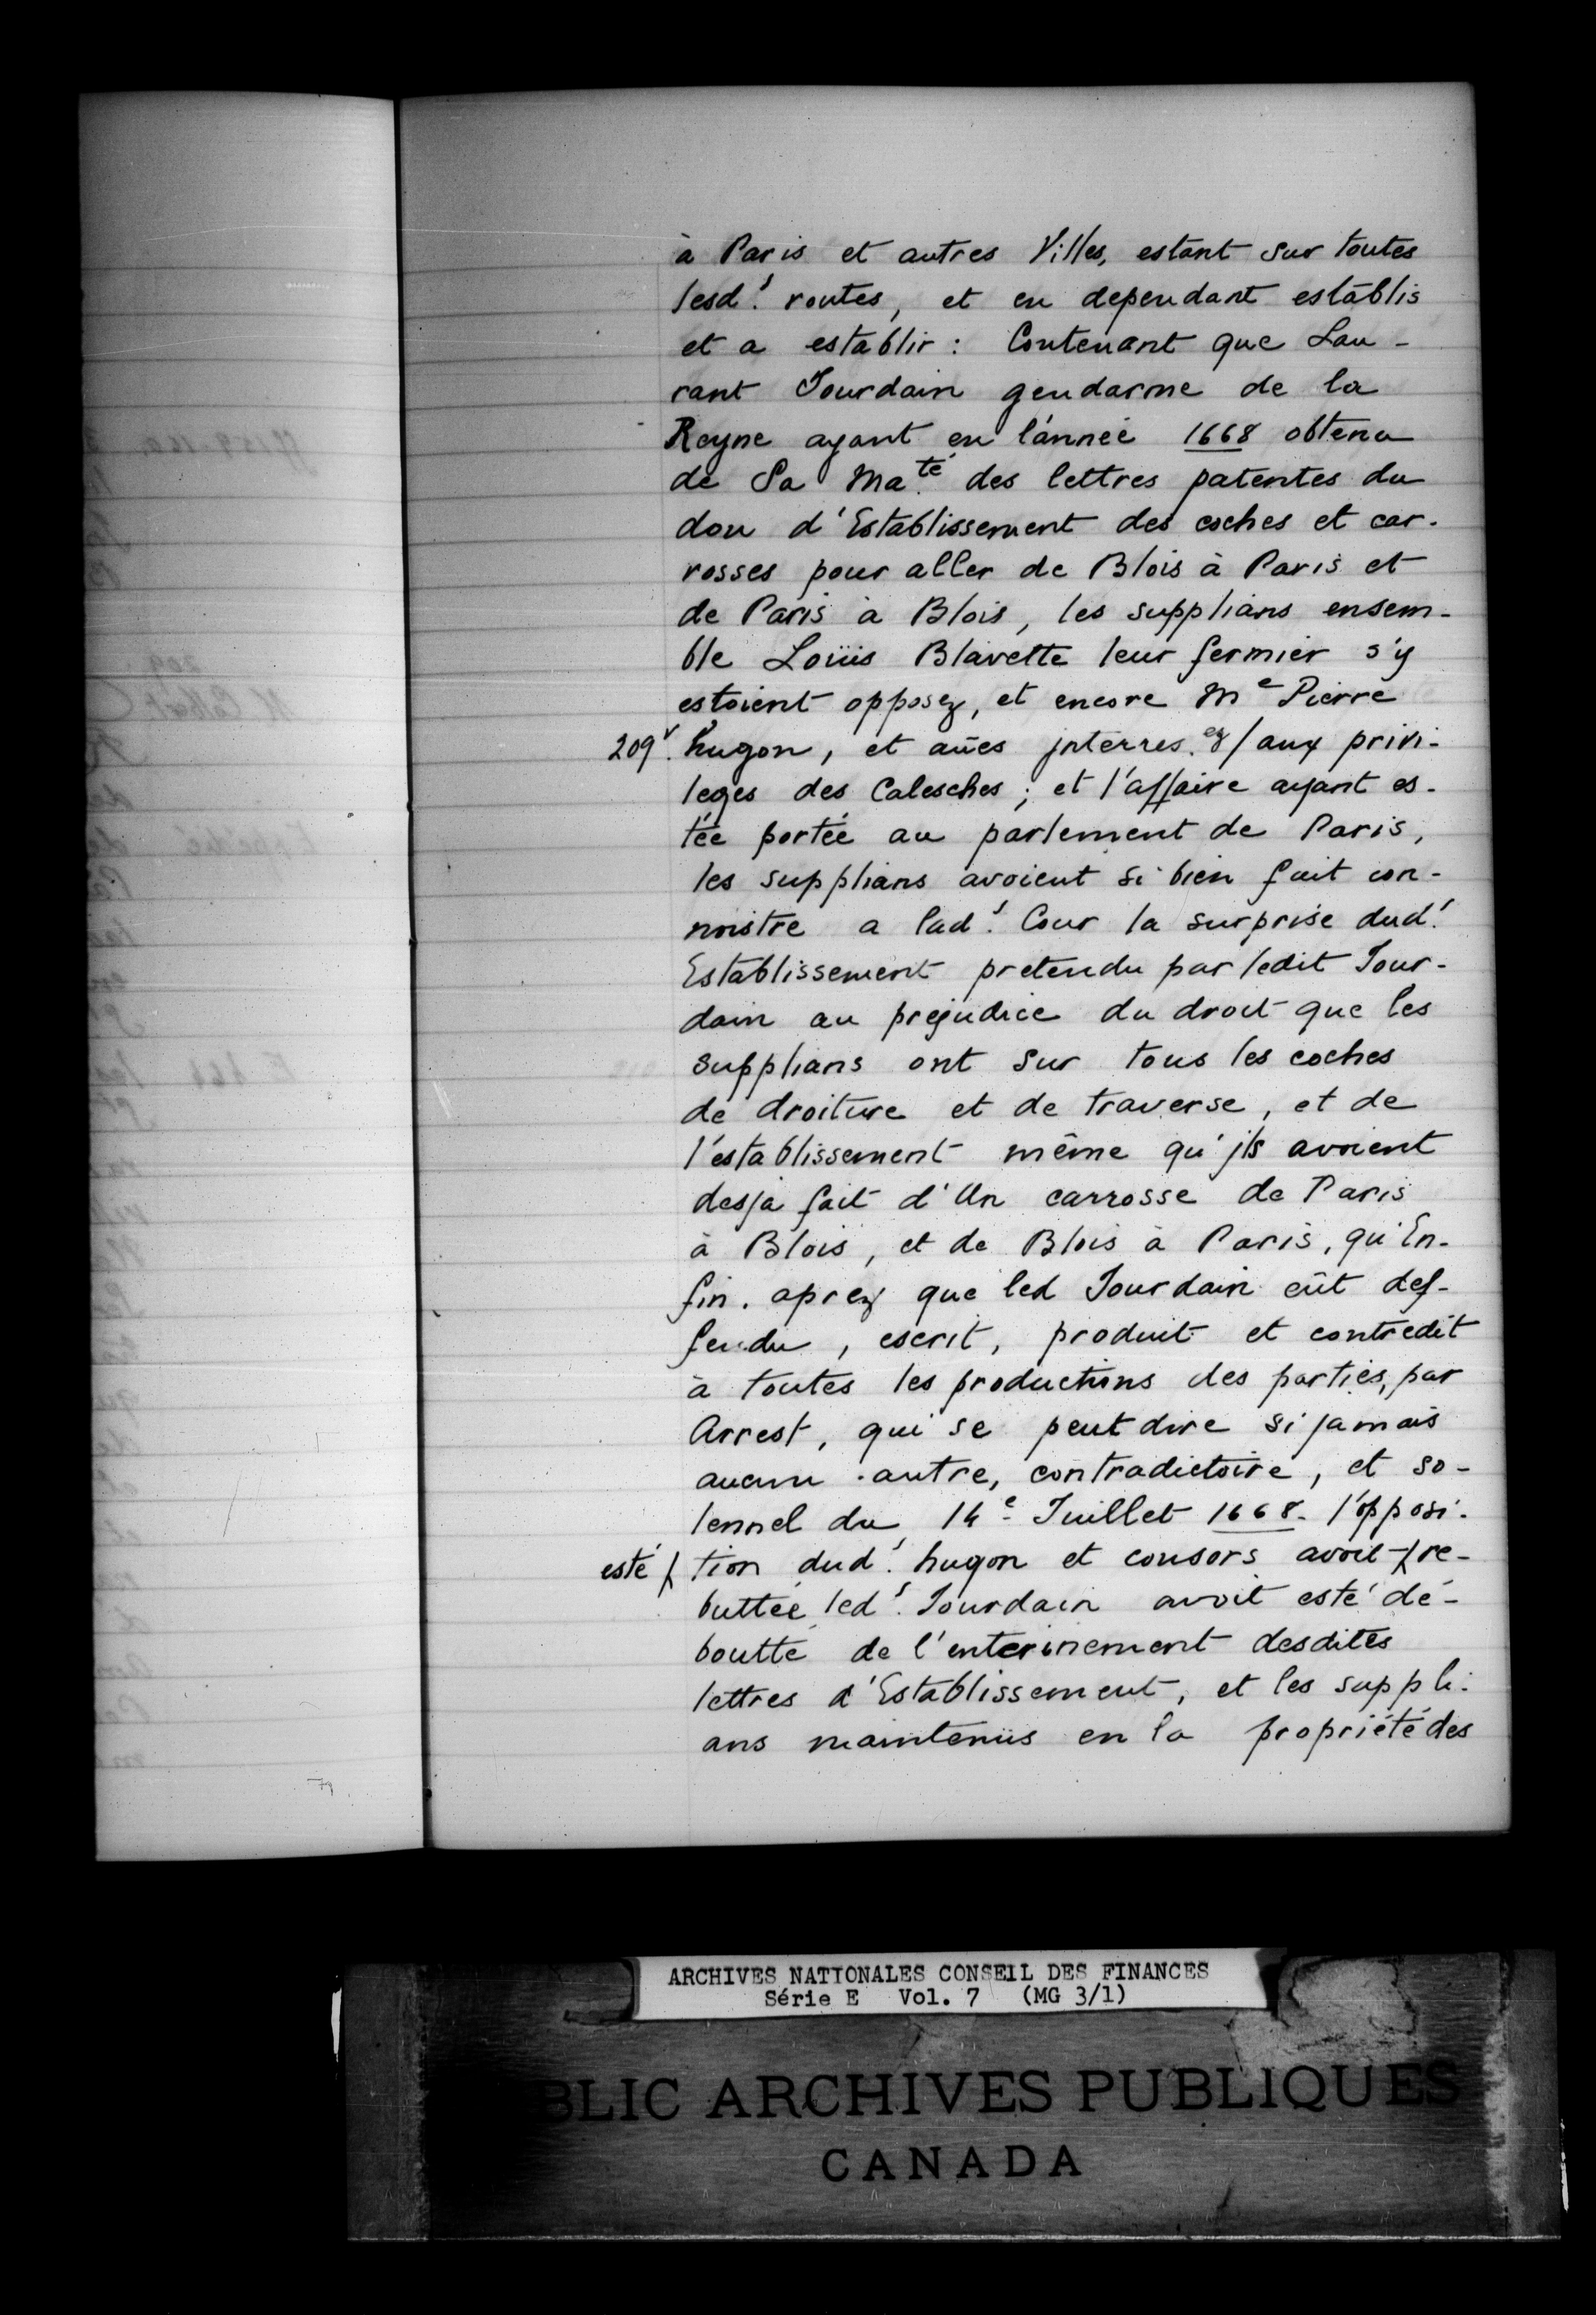 à Paris et autres Villes, estant sur toutes
lesd.s routes, et en dependant establis
et a establir : Contenant que Lau-
rant Jourdain gendarme de la
Reyne ayant en l'année 1668 obtenu
de Sa Ma.té des lettres patentes du
don d'Establissement des coches et car-
rosses pour aller de Blois à Paris et
de Paris à Blois, les supplians ensem-
ble Loüis Blavette leur fermier s'y
estoient opposez, et encore Me Pierre
209v. hugon, et aũes jnterres.ez / aux privi-
leges des Calesches ; et l'affaire ayant es-
tée portée au parlement de Paris,
les supplians avoient si bien fait con-
noistre a lad.s Cour la surprise dud.s
Establissement pretendu par ledit Jour-
dain au prejudice du droit que les
supplians ont sur tous les coches
de droiture et de traverse, et de
l'establissement même qu'jls avoient
desja fait d'Un carrosse de Paris
à Blois, et de Blois à Paris, qu'En-
fin. aprez que led Jourdain eût def-
fendu, escrit, produit et contredit
à toutes les productions des parties, par
Arrest, qui se peut dire si jamais
aucun autre, contradictoire, et so-
lennel du 14e Juillet 1668. l'opposi-
esté / tion dud.s hugon et consors avoit / re-
buttée led.s Jourdain avoit esté dé-
boutté de l'enterinement desdites
lettres d'Establissement, et les suppli-
ans maintenüs en la propriété des
ARCHIVES NATIONALES CONSEIL DES FINANCES
Série E Vol. 7 (MG 3/1)
BLIC ARCHIVES PUBLIQUES
CANADA